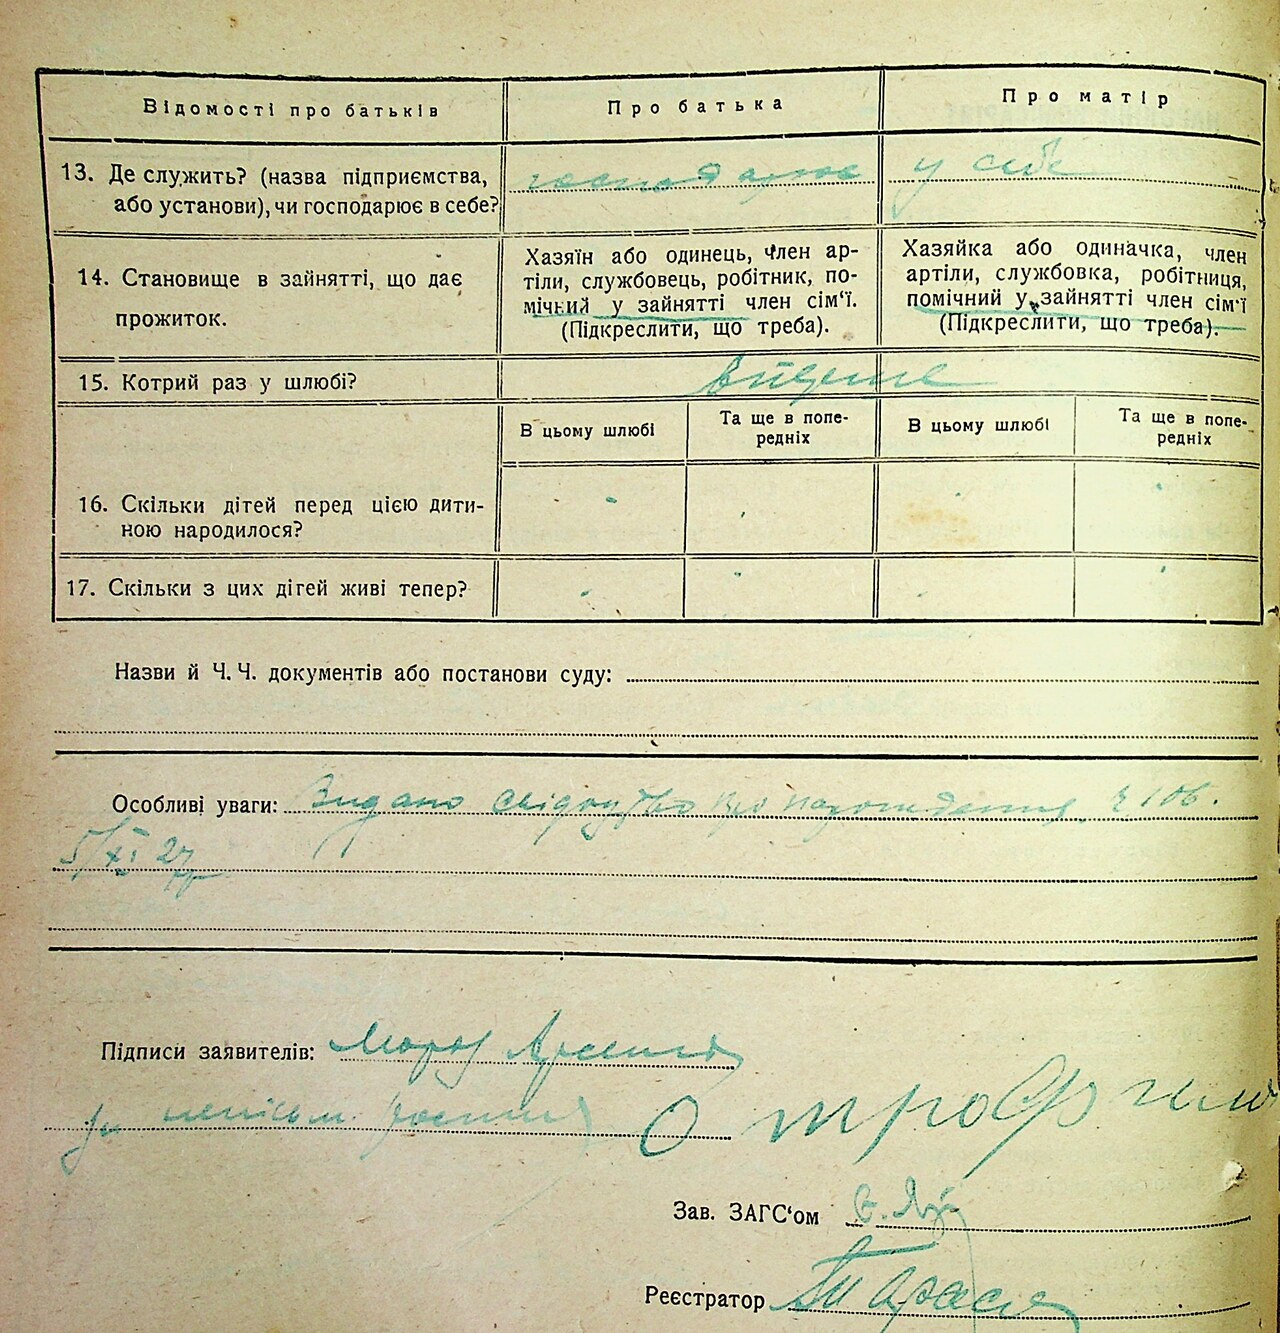 Відомості про батьків
Про батька
Про матір
13. Де служить? (назва підприємства,
або установи), чи господарює в себе?
господарює
у себе
14. Становище в зайнятті, що дає
прожиток.
Хазяїн або одинець, член ар-
тіли, службовець, робітник, по-
мічний у зайнятті член сім'ї.
(Підкреслити, що треба).
Хазяйка або одиначка, член
артіли, службовка, робітниця,
помічний у зайнятті член сім'ї
(Підкреслити, що треба).
15. Котрий раз у шлюбі?
В цьому шлюбі
Та ще в попе-
редніх
В цьому шлюбі
Та ще в попе-
редніх
16. Скільки дітей перед цією дити-
ною народилося?
17. Скільки з цих дігей живі тепер?
Назви й Ч. Ч. документів або постанови суду:
Особливі уваги: Видано свідоцтво про народження ч 106.
5/XI 27р
Підписи заявителів: Мороз Арсений
Зав. ЗАГС'ом
Реєстратор